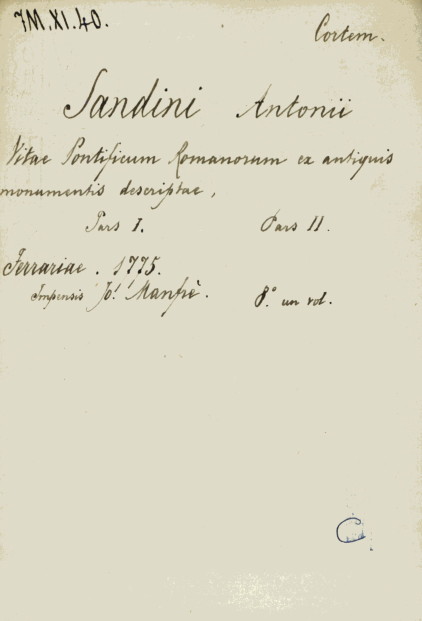 7M.XI.40.
Cortem.
Sandini Antonii
Vitae Pontificum Romanorum ex antiquis
monumentis descriptae,
Pars I. Pars II.
Ferrariae. 1775.
Impensis Jo! Manfrè. 8.° un vol.